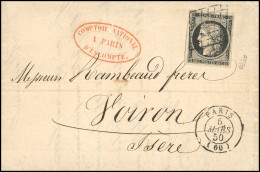 COMPTOIR NATIONAL
A PARIS
D'ESCOMPTE
REPUB. FRANC.
Messieurs Rambeaud frères
Voiron
Isère
PARIS
5
MARS
50
(60)